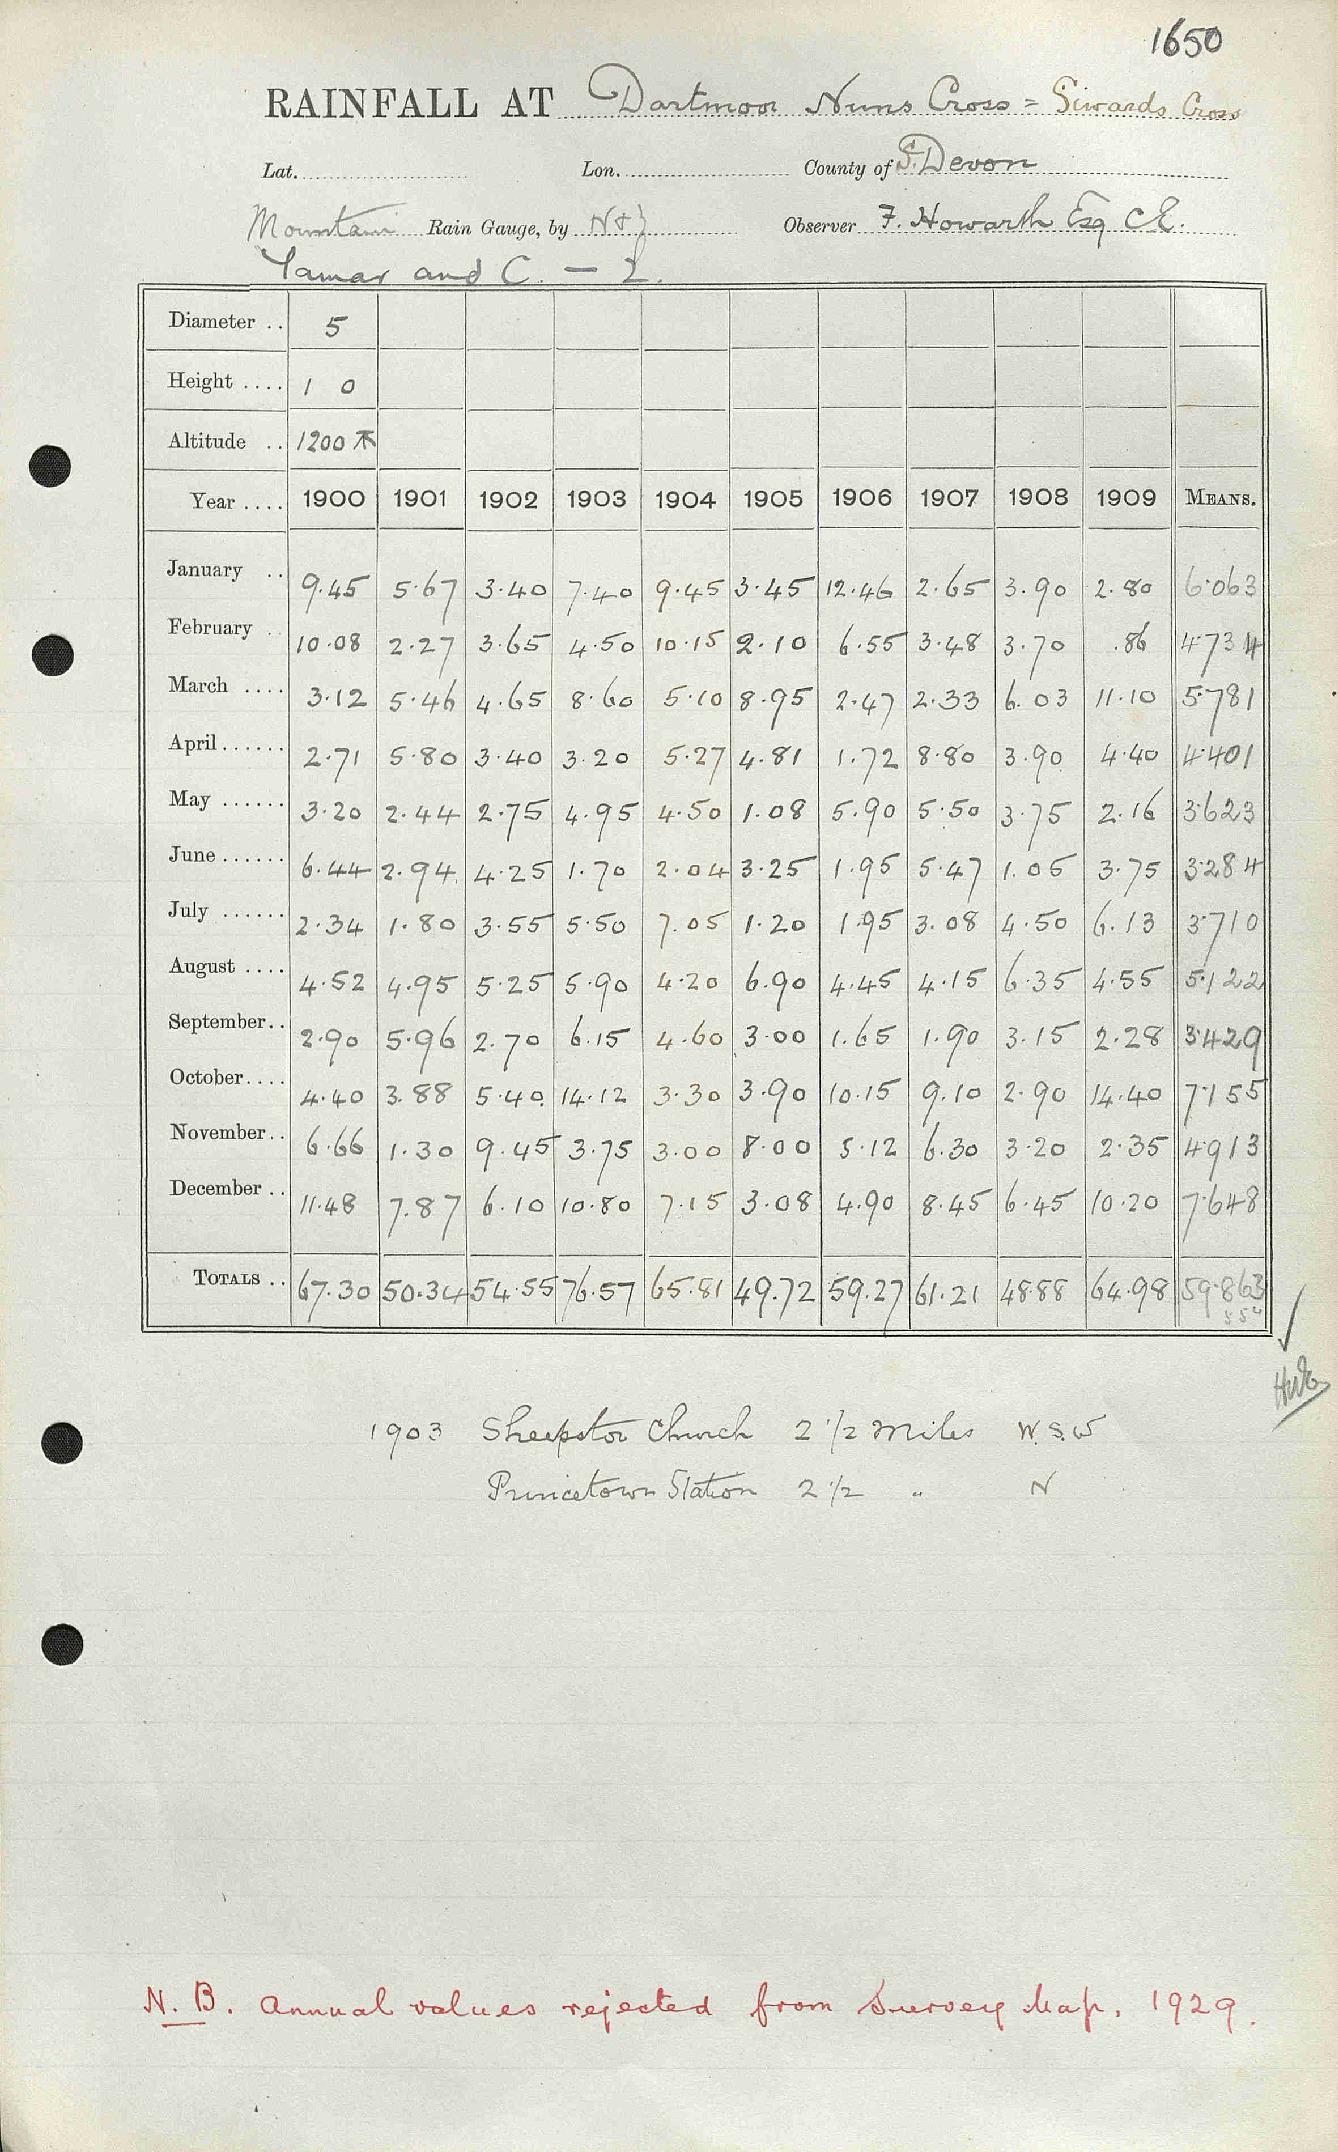 1650
RAINFALL AT Dartmoor Nuns Cross = Siwards Cross
Lat. Lon. County of S. Devon
Mountain Rain Gauge, by N+Z Observer F. Howarth Esq C.E.
Tamar and C. — 2.
Diameter .. 5
Height .... 1 0
Altitude .. 1200
Year .... 1900 1901 1902 1903 1904 1905 1906 1907 1908 1909 MEANS.
January .. 9.45 5.67 3.40 7.40 9.45 3.45 12.46 2.65 3.90 2.80 6.063
February .. 10.08 2.27 3.65 4.50 10.15 2.10 6.55 3.48 3.70 .86 4.734
March .... 3.12 5.46 4.65 8.60 5.10 8.95 2.47 2.33 6.03 11.10 5.781
April...... 2.71 5.80 3.40 3.20 5.27 4.81 1.72 8.80 3.90 4.40 4.401
May ...... 3.20 2.44 2.75 4.95 4.50 1.08 5.90 5.50 3.75 2.16 3.623
June...... 6.44 2.94 4.25 1.70 2.04 3.25 1.95 5.47 1.05 3.75 3.284
July ...... 2.34 1.80 3.55 5.50 7.05 1.20 1.95 3.08 4.50 6.13 3.710
August .... 4.52 4.95 5.25 5.90 4.20 6.90 4.45 4.15 6.35 4.55 5.122
September.. 2.90 5.96 2.70 6.15 4.60 3.00 1.65 1.90 3.15 2.28 3.429
October.... 4.40 3.88 5.40 14.12 3.30 3.90 10.15 9.10 2.90 14.40 7.155
November.. 6.66 1.30 9.45 3.75 3.00 8.00 5.12 6.30 3.20 2.35 4.913
December .. 11.48 7.87 6.10 10.80 7.15 3.08 4.90 8.45 6.45 10.20 7.648
TOTALS .. 67.30 50.34 54.55 76.57 65.81 49.72 59.27 61.21 48.88 64.98 59.863
1903 Sheepstor Church 2 1/2 miles W.S.W
Princetown Station 2 1/2 " N
N.B. Annual values rejected from Survey Map, 1929.